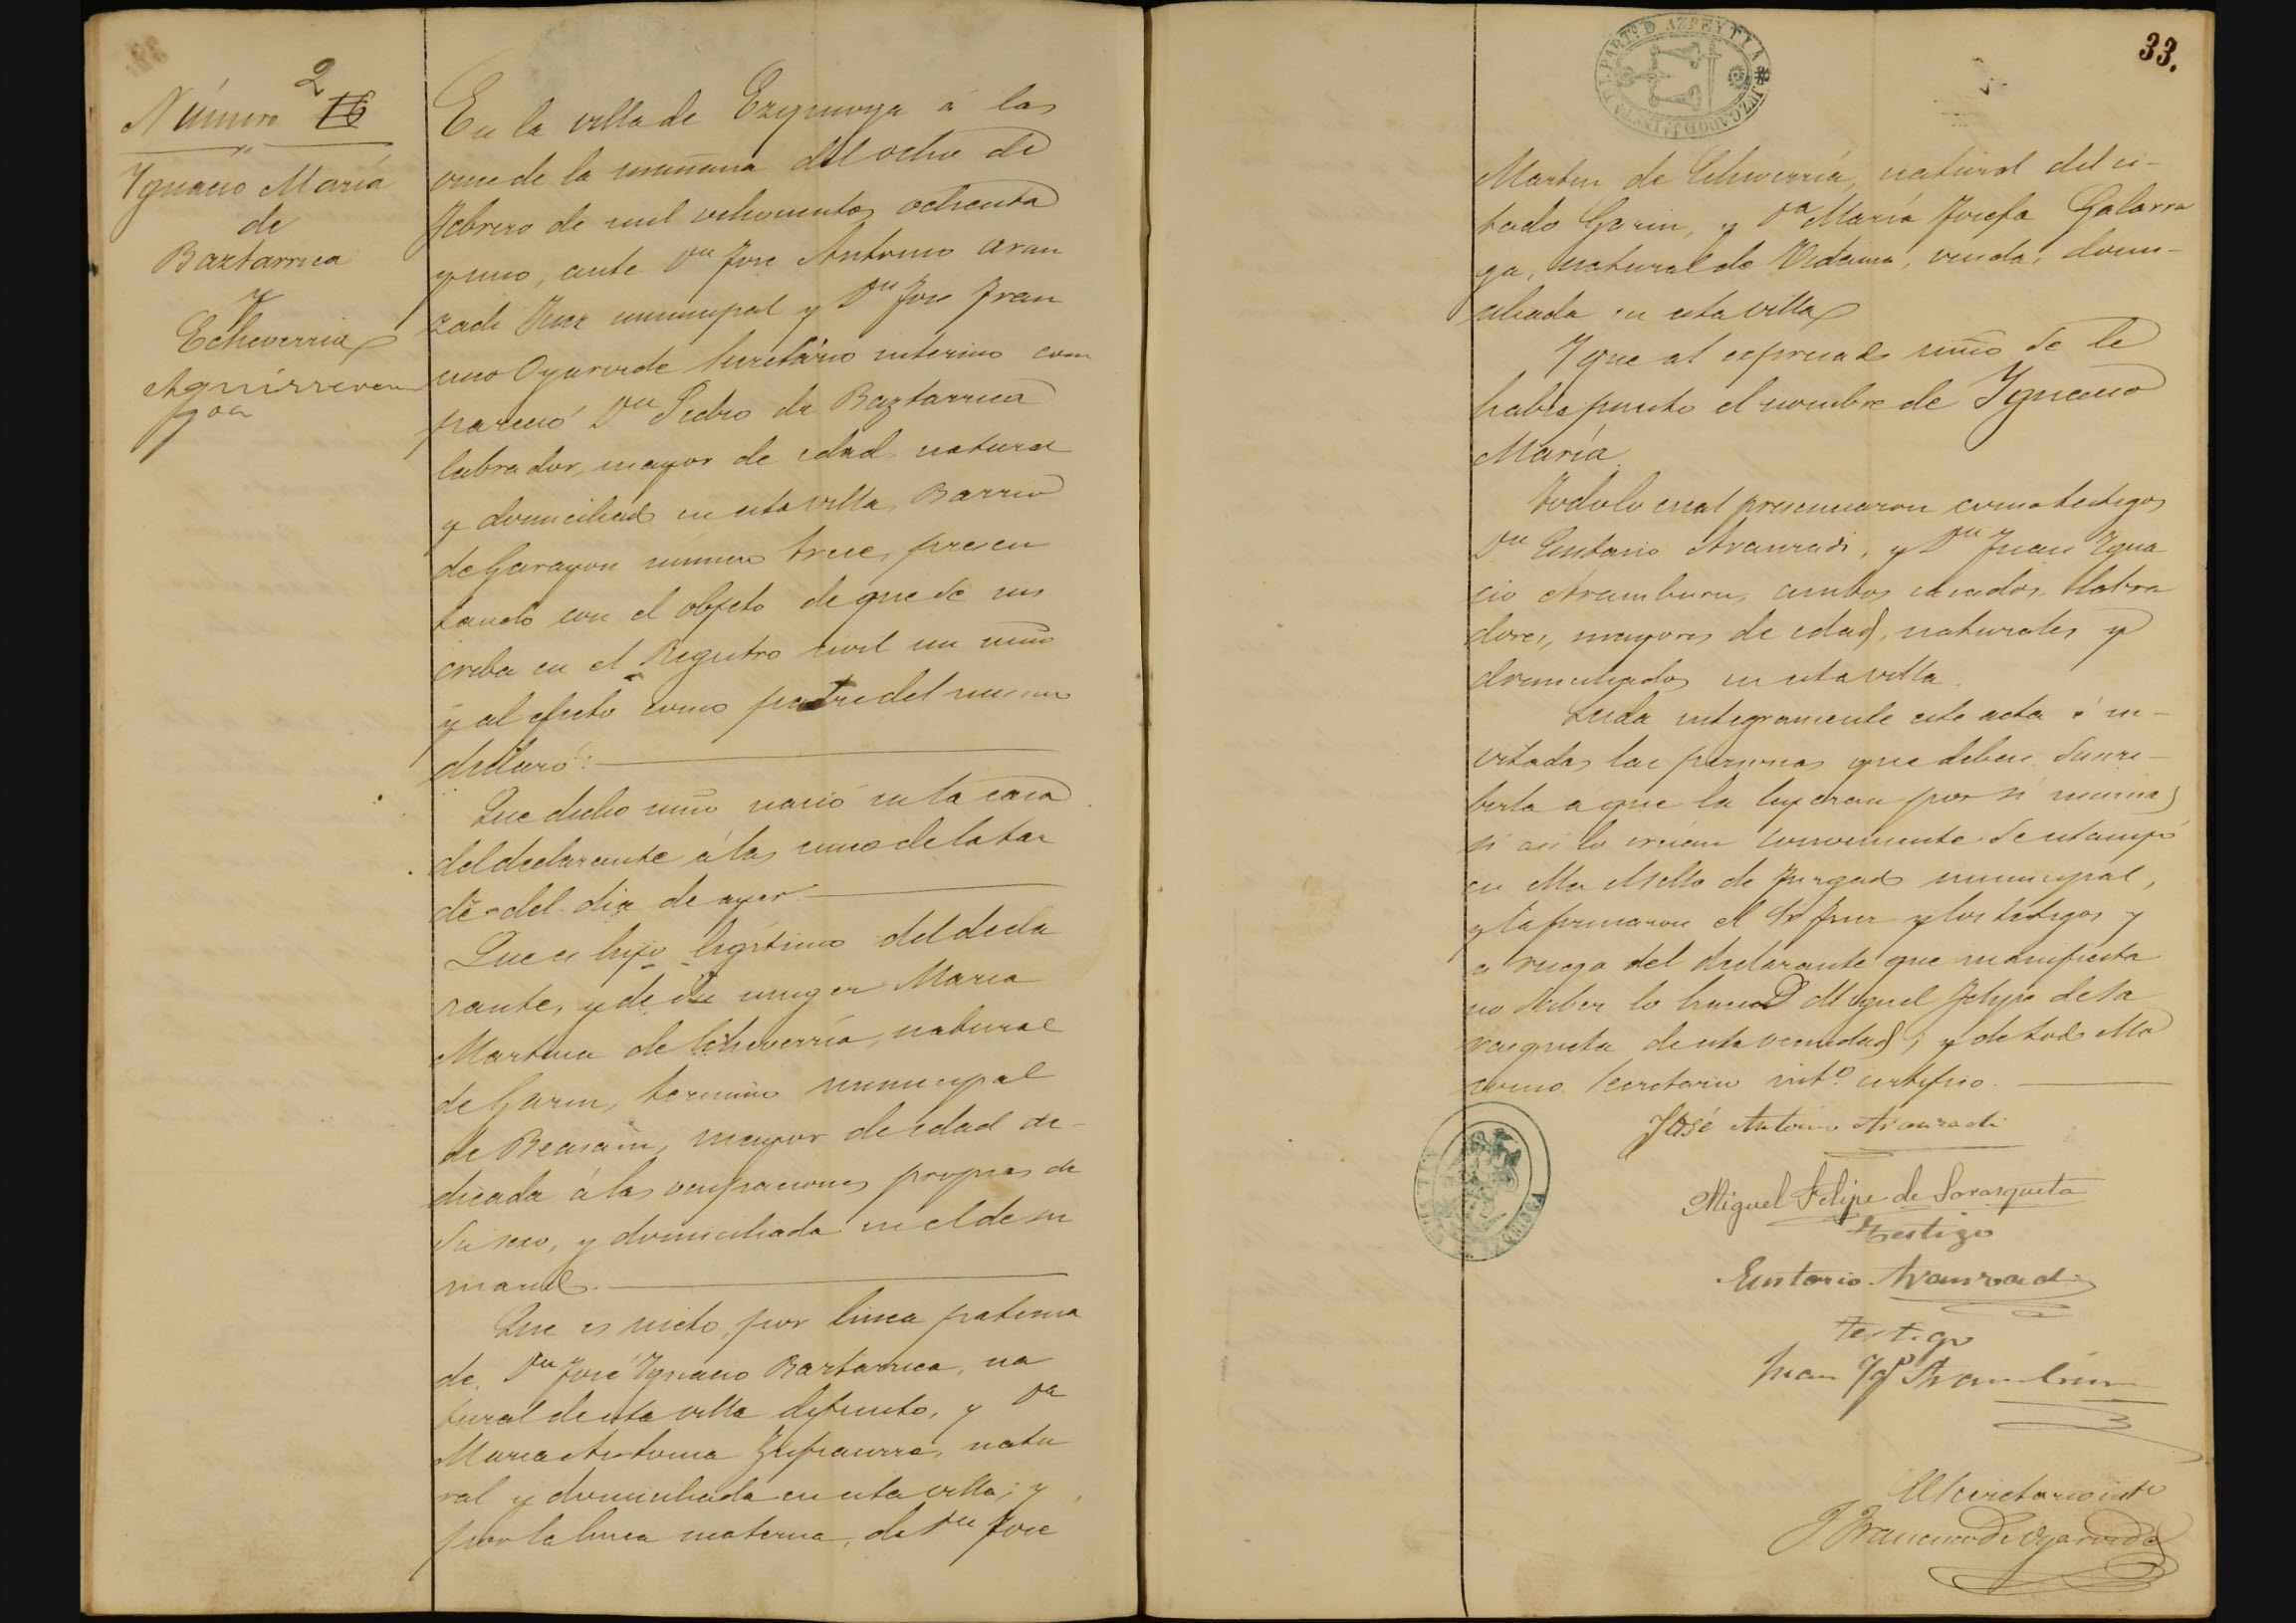 33.
Número 2 16
Ygnacio María
de
Baztarrica
y
Echeverria
Aguirreven
goa
En la villa de Ezquioga á las
once de la mañana del ocho de
Febrero de mil ochocientos ochenta
y uno, ante Dn José Antonio Aran
zadi Juez municipal y Dn José Fran
cisco Oyarvide Secretário interino com
pareció Dn Pedro de Baztarrica
labrador, mayor de edad, natural
y domiciliado en esta villa, Barrio
de Garayoa número trece, presen
tando con el objeto de que se ins
criba en el Registro civil un niño
y al efecto como padre del mismo
declaró:
Que dicho niño nació en la casa
del declarante á las cinco de la tar
de del dia de ayer.
Que es hijo legítimo del decla
rante, y de su muger Maria
Martina de Echeverría, natural
de Garin, termino municipal
de Beasain, mayor de edad de-
dicada á las ocupaciones propias de
su sexo, y domiciliada en el de su
marido.
Que es nieto, por linea paterna
de Dn José Ygnacio Baztarrica, na
tural de esta villa difunto, y Da
Maria Antonia natu
ral y domiciliada en esta villa; y
por la linea materna, de Dn José
PARTº D AZPEYTIA
Martin de Echeverría, natural del ci-
tado Garin, y Da María Josefa Galarra
ga, natural de Vidania, viuda, domi-
ciliada en esta villa
Y que al expresado niño se le
habia puesto el nombre de Ygnacio
María.
Todo lo cual presenciaron como testigos
Dn Eustasio Aranzadi, y Dn Juan Ygna
cio Aramburu, ambos casados, labra
dores, mayores de edad, naturales y
domiciliados en esta villa.
Leida integramente este acta é in-
vitadas las personas que deben suscri-
birla a que la leyeran por si mismas
si asi lo creian conveniente se estampó
en ella el sello de Juzgado municipal,
y la firmaron el Sr Juez y los testigos y
a ruego del declarante que manifiesta
no saber lo hace D Miguel Felipe de Sa
rasqueta de esta vecindad; y de todo ello
como Secretario intº. certifico.
José Antonio Aranzadi
Miguel Felipe de Sarasqueta
Testigo
Eustasio Aranzadi
Testigo
Juan Ygº Aramburu
El Secretario intº
J Francisco de Oyarvide